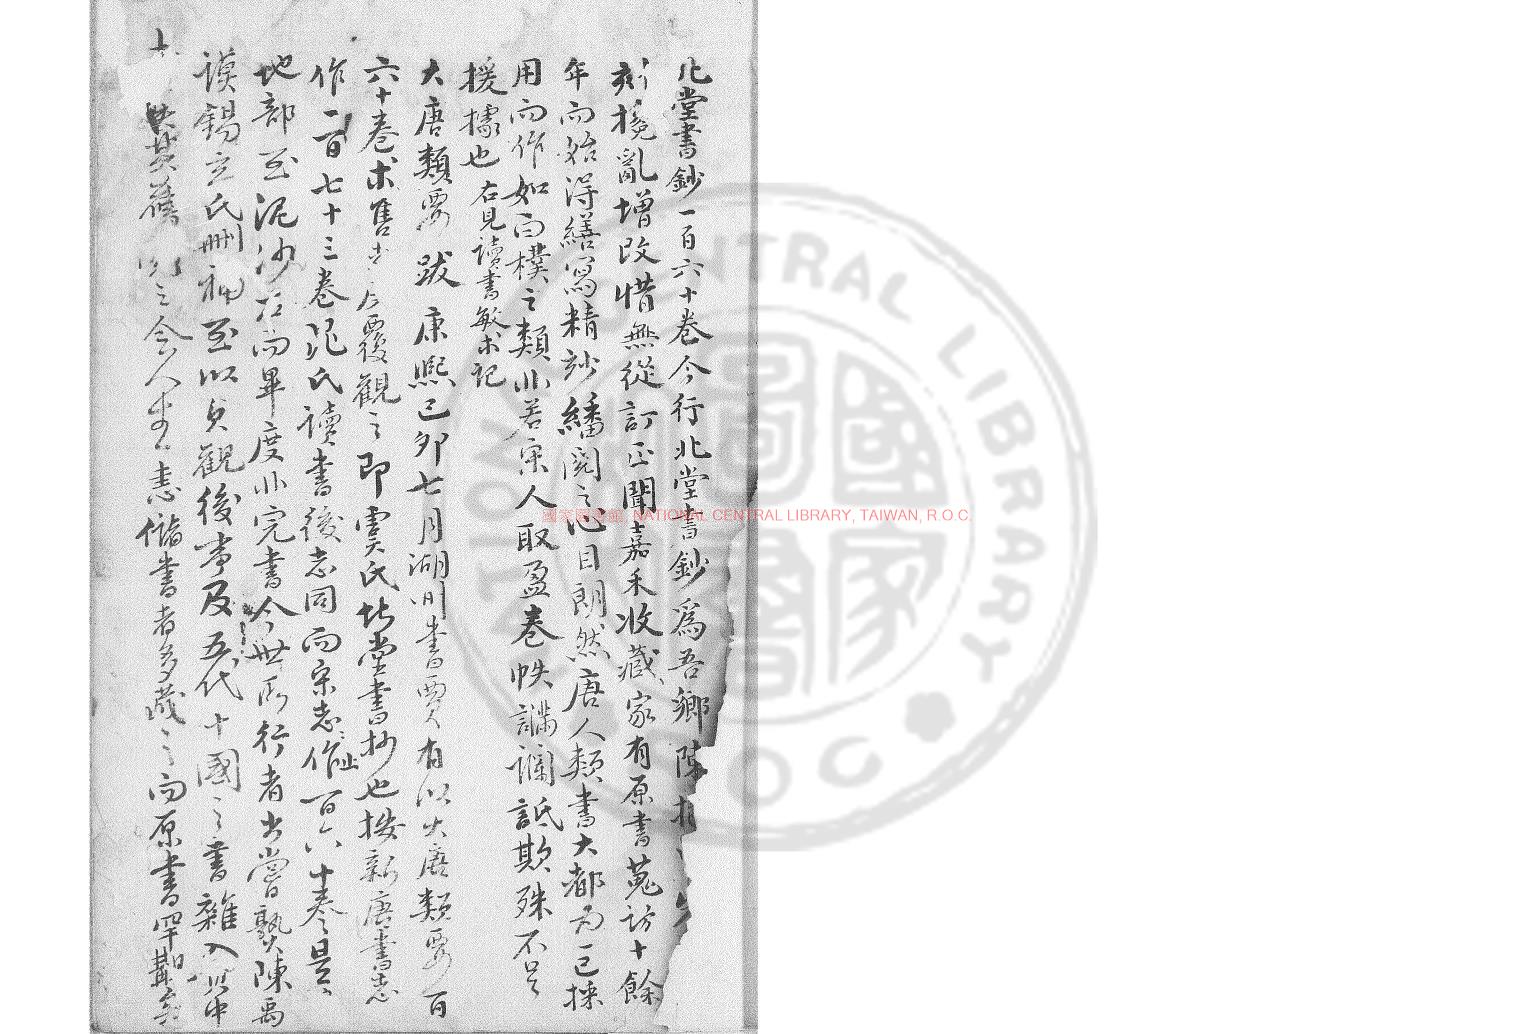 北堂書鈔一百六十卷今行北堂書鈔爲吾鄉陳
刻攙亂增改惜無從訂正聞嘉禾收藏家有原書蒐訪十餘
年而始得繕寫精妙繙閱之心目朗然唐人類書大都爲已採
用而作如白樸之類非若宋人取盈卷帙讕詆欺殊不足
援據也右見讀書敏求記
大唐類要跋康熙己卯七月湖州書賈有以大唐類要百
六十卷求售 覆觀之即虞氏北堂書抄也按新唐書志
作一百七十三卷晁氏讀書後志同而宋志止作百六十卷是
地部至泥沙石而畢度非完書今世所行者出嘗熟陳禹
謨錫玄氏刪補至以貞觀後事及五代十國之書雜入其中
其舊 之今人 偕書者多藏之而原書罕
國家圖書館, NATIONAL CENTRAL LIBRARY, TAIWAN, R.O.C.
NATIONAL CENTRAL LIBRARY